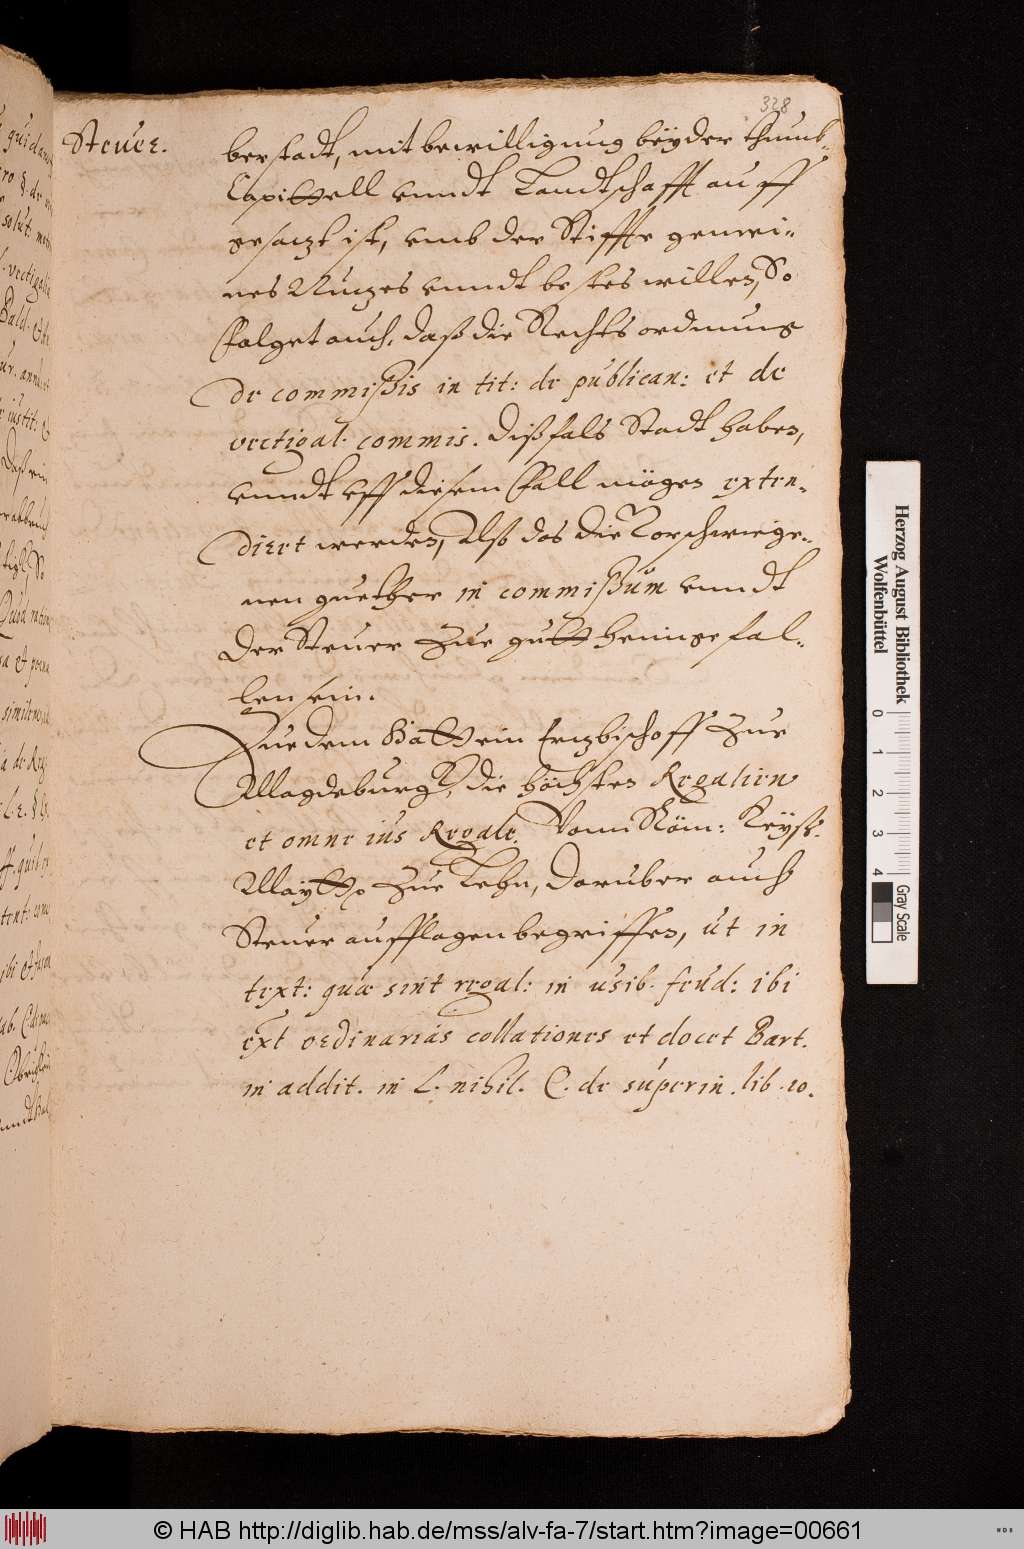 328
Steuer.
berstadt, mit bewilligung beÿder thumb-
Capittell unndt Landtschafft auff
gesatzt ist, umb der Stiffte gemei-
nes Nutzes unndt bestes willen, So
folget auch, daß die Rechts ordnung
de commissis in tit: de publican: et de
vectigal. commis. dißfals Stadt haben,
unndt uff diesem fall mögen exten-
diert werden, Alß das die Vorschwiege-
nen guether in commissum unndt
der Steuer zue gutt heimgefal-
len sein.
Zue dem hatt ein Ertzbischoff zue
Magdeburgk, die höchsten Regalien
et omne ius Regale. Vom Röm: Keÿß.
Maytt. zue Lehn, darueber auch
Steuer aufflagen begriffen, ut in
text: quæ sint regal: in usib. feud: ibi
ext ordinarias collationes et docet Bart.
in addit. in l. nihil. C. de superin. lib. 10.
Herzog August Bibliothek
Wolfenbüttel
0 1 2 3 4
Gray Scale
© HAB http://diglib.hab.de/mss/alv-fa-7/start.htm?image=00661